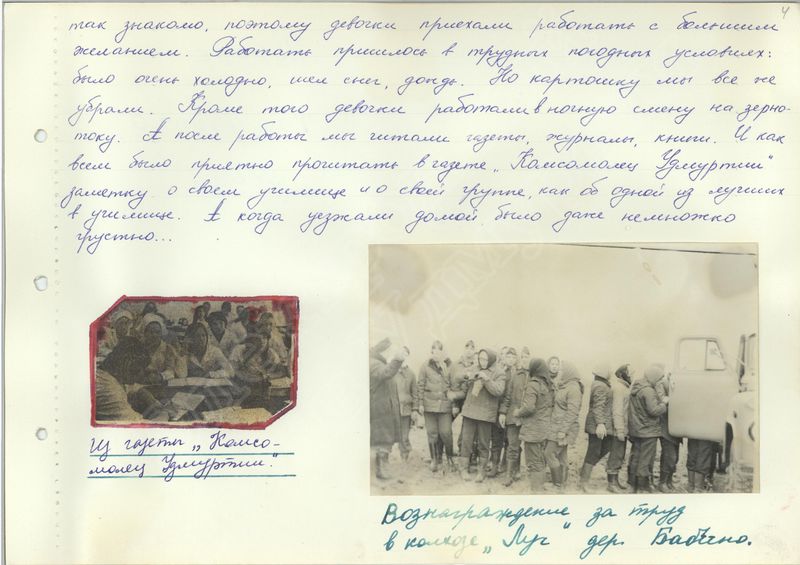 4
так знакомо, поэтому девочки приехали работать с большим
желанием. Работать пришлось в трудных погодных условиях:
было очень холодно, шел снег, дождь. Но картошку мы все же
убрали. Кроме того девочки работали в ночную смену на зерно-
току. А после работы мы читали газеты, журналы, книги. И как
всем было приятно прочитать в газете „Комсомолец Удмуртии"
заметку о своем училище и о своей группе, как об одной из лучших
в училище. А когда уезжали домой, было даже немножко
грустно...
Из газеты „Комсо-
молец Удмуртии".
Вознаграждение за труд
в колхозе „Луч" дер. Бабчино.